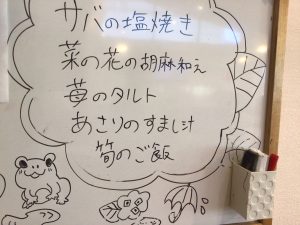 サバの塩焼き
菜の花の胡麻和え
苺のタルト
あさりのすまし汁
筍のご飯